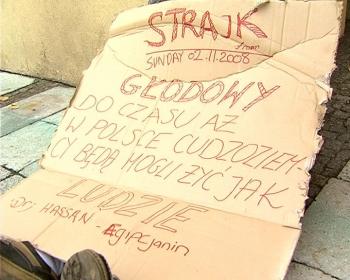 STRAJK
from
SUNDAY 02.11.2008
GŁODOWY
DO CZASU AŻ
W POLSCE CUDZOZIEM-
CY BĘDĄ MOGLI ŻYĆ JAK
LUDZIE
HASSAN - EgiPcjanin